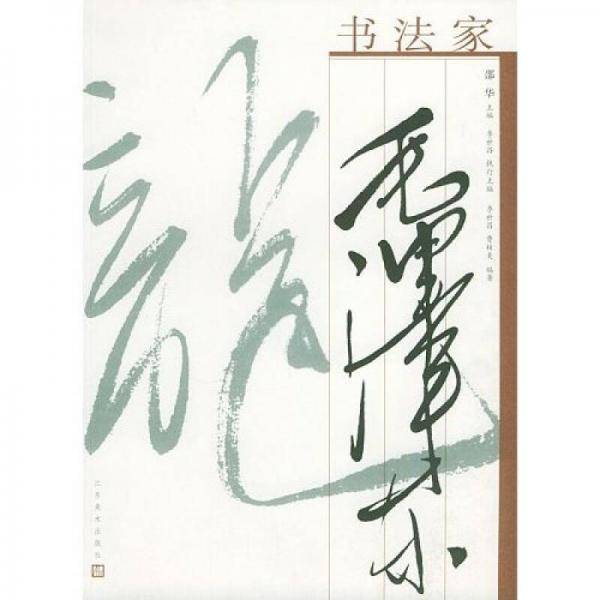 书法家
邵华 主编 李世昌 执行主编 李世昌 曹桂灵 编著
毛泽东
龍
江苏美术出版社